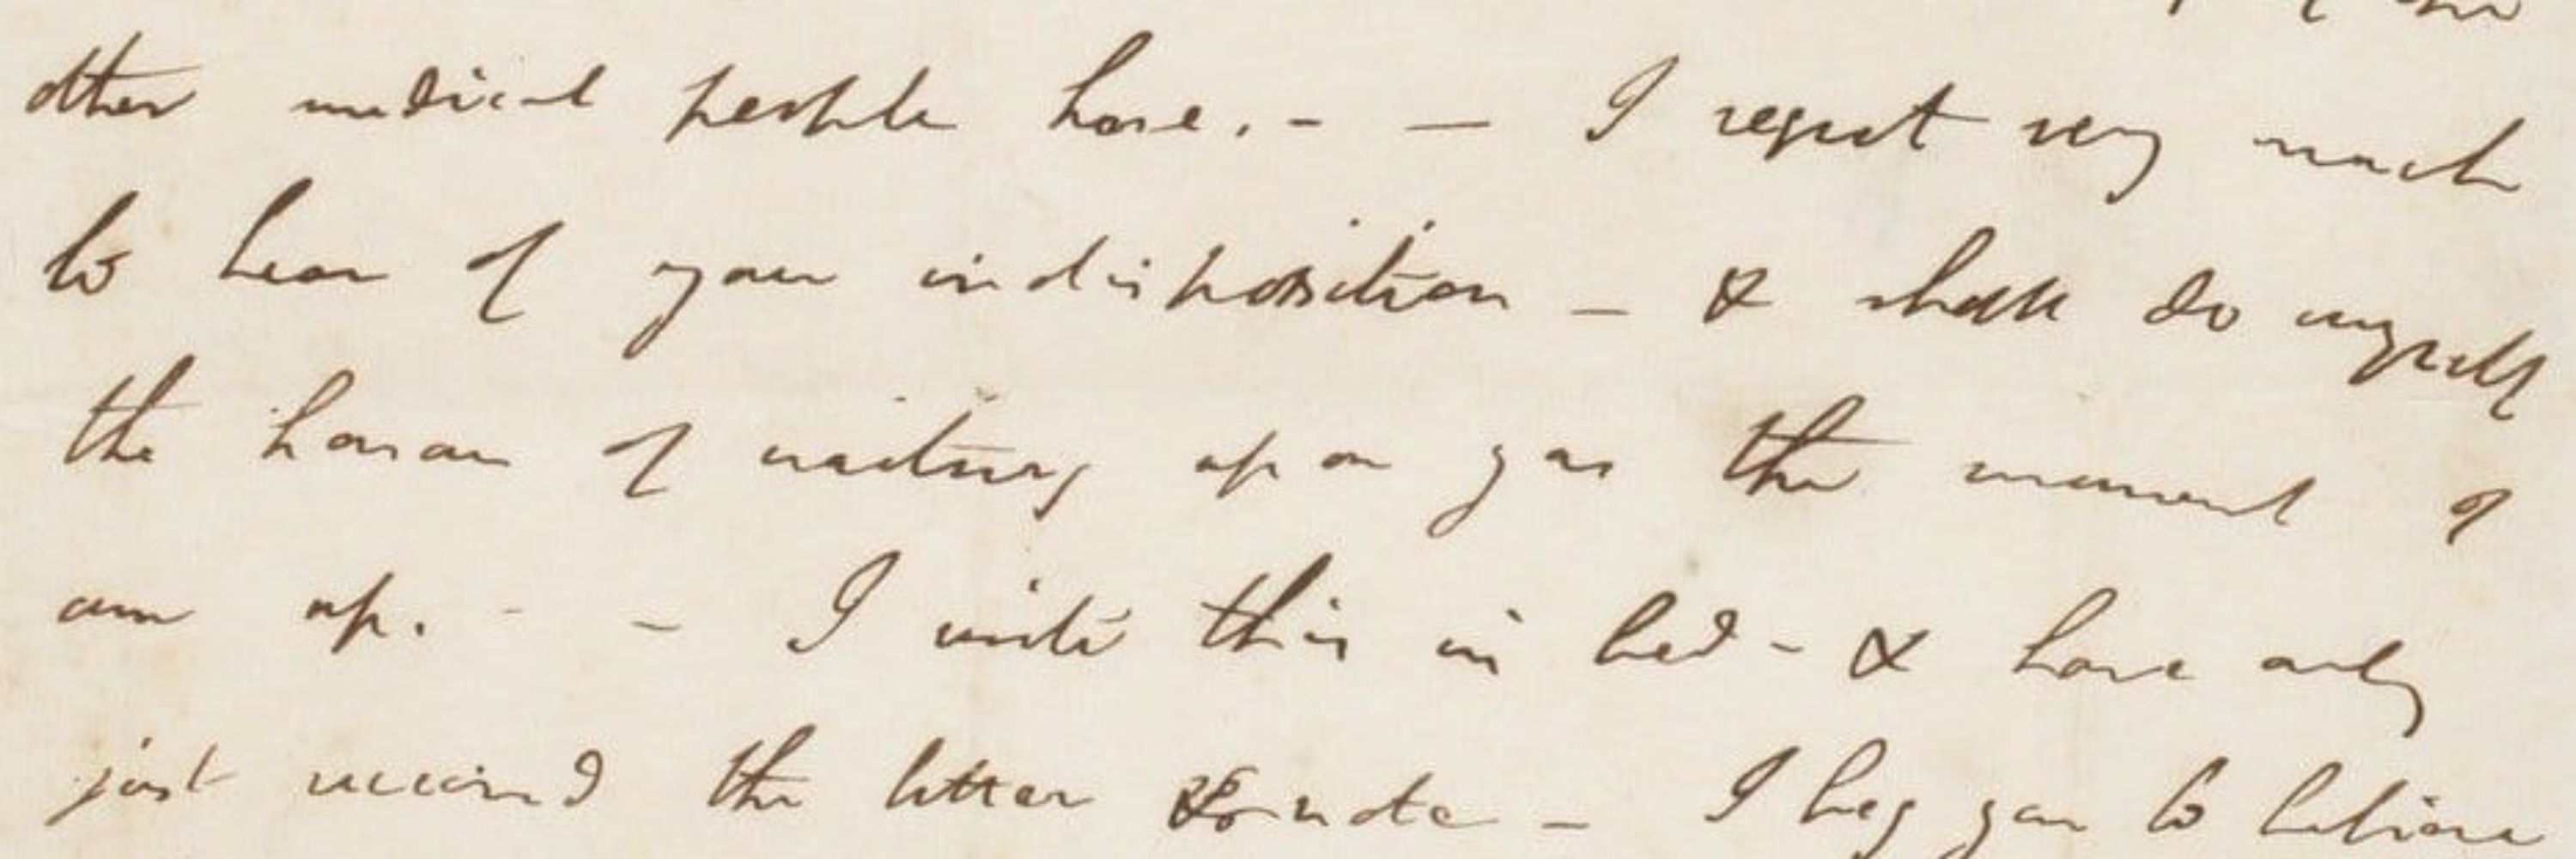 other medical people have. - — I regret very much
to hear of your indisposition — & shall do myself
the honour of waiting upon you the moment I
am up. - — I write this in bed - & have only
just received the letter & note — I beg you to believe